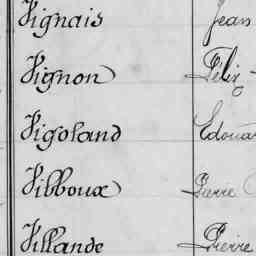 Vignais Jean
Vignon Félix
Vigoland Edouar
Vibboux Pierre
Villande Pierre